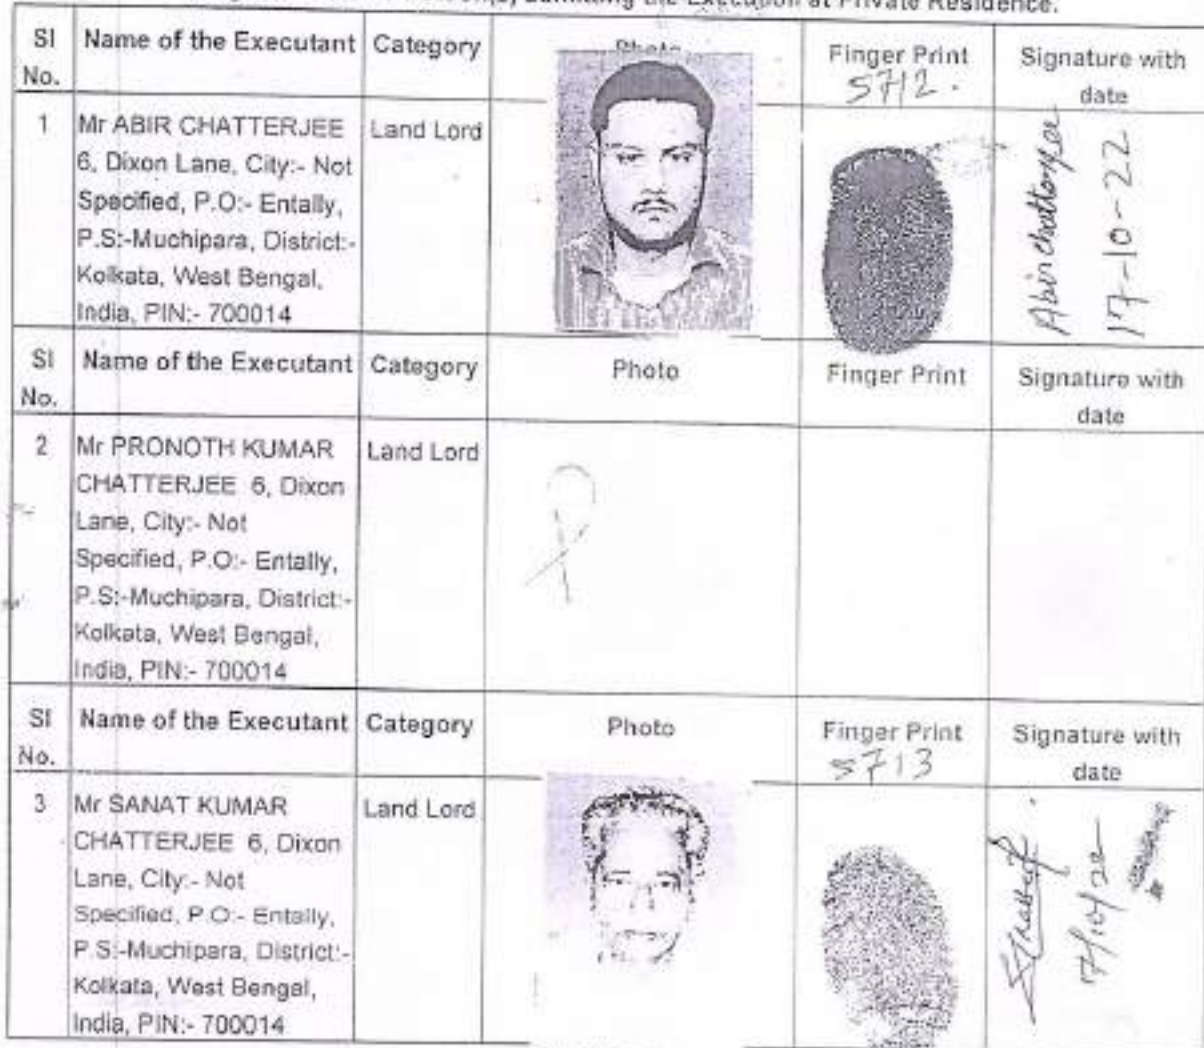 admitting the Execution at Private Residence.
Sl No. Name of the Executant Category Photo Finger Print Signature with date
5712.
1 Mr ABIR CHATTERJEE Land Lord
6, Dixon Lane, City:- Not
Specified, P.O:- Entally,
P.S:-Muchipara, District:-
Kolkata, West Bengal,
India, PIN:- 700014
Abir Chatterjee
17-10-22
Sl No. Name of the Executant Category Photo Finger Print Signature with date
2 Mr PRONOTH KUMAR Land Lord
CHATTERJEE 6, Dixon
Lane, City:- Not
Specified, P.O:- Entally,
P.S:-Muchipara, District:-
Kolkata, West Bengal,
India, PIN:- 700014
Sl No. Name of the Executant Category Photo Finger Print Signature with date
5713
3 Mr SANAT KUMAR Land Lord
CHATTERJEE 6, Dixon
Lane, City:- Not
Specified, P.O:- Entally,
P.S:-Muchipara, District:-
Kolkata, West Bengal,
India, PIN:- 700014